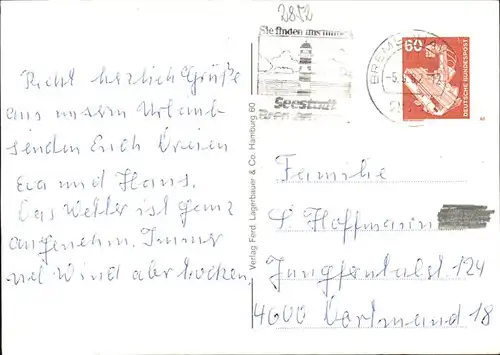 2852
Sie finden uns immer
Seestadt
BREME
-5.
60
DEUTSCHE BUNDESPOST
Recht herzlich Grüße
aus unserm Urlaub
senden Euch
Eva und Hans.
Das Wetter ist ganz
angenehm. Immer
viel Wind aber trocken.
Verlag Ferd. Lagerbauer & Co. Hamburg 60
Familie
S. Hoffmann
124
4600 Dortmund 18